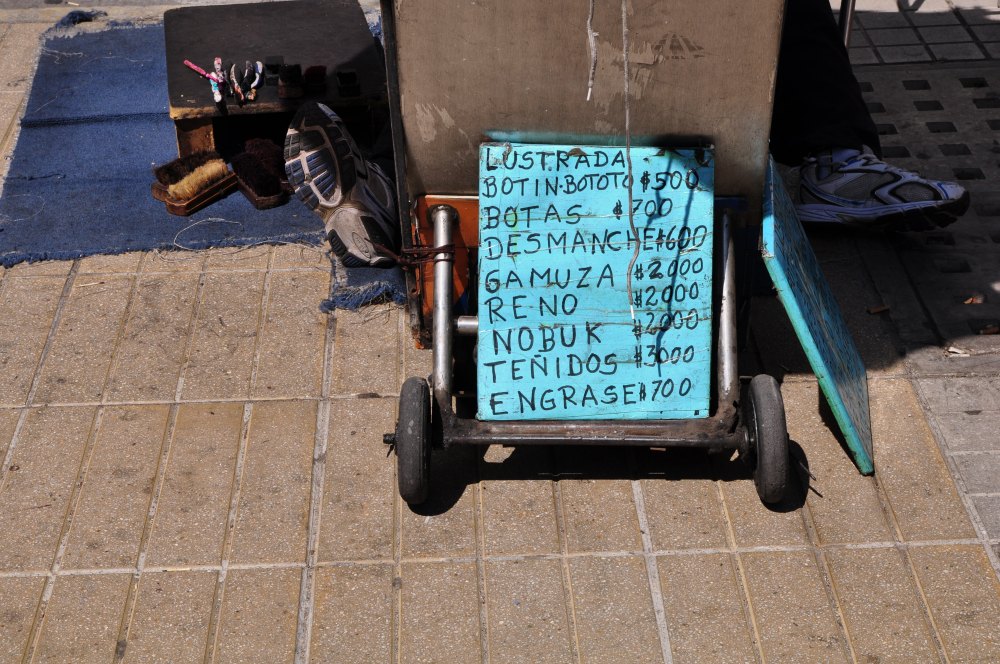 LUSTRADA
BOTIN-BOTOTO $500
BOTAS $700
DESMANCHE $600
GAMUZA $2000
RENO $2000
NOBUK $2000
TEÑIDOS $3000
ENGRASE $700